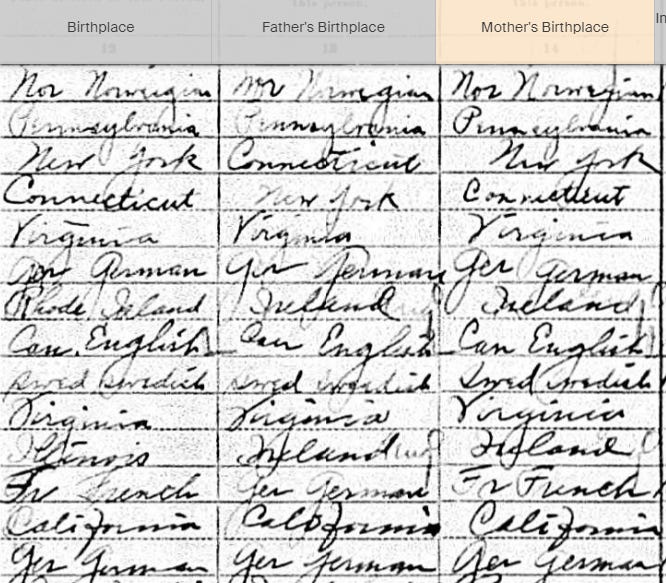 Birthplace Father's Birthplace Mother's Birthplace
12 13 14
Nor Norwegian Nor Norwegian Nor Norwegian
Pennsylvania Pennsylvania Pennsylvania
New York Connecticut New York
Connecticut New York Connecticut
Virginia Virginia Virginia
Ger German Ger German Ger German
Rhode Island Ireland Ireland
Can. English Can English Can English
Swed Swedish Swed Swedish Swed Swedish
Virginia Virginia Virginia
Illinois Ireland Ireland
Fr French Ger German Fr French
California California California
Ger German Ger German Ger German